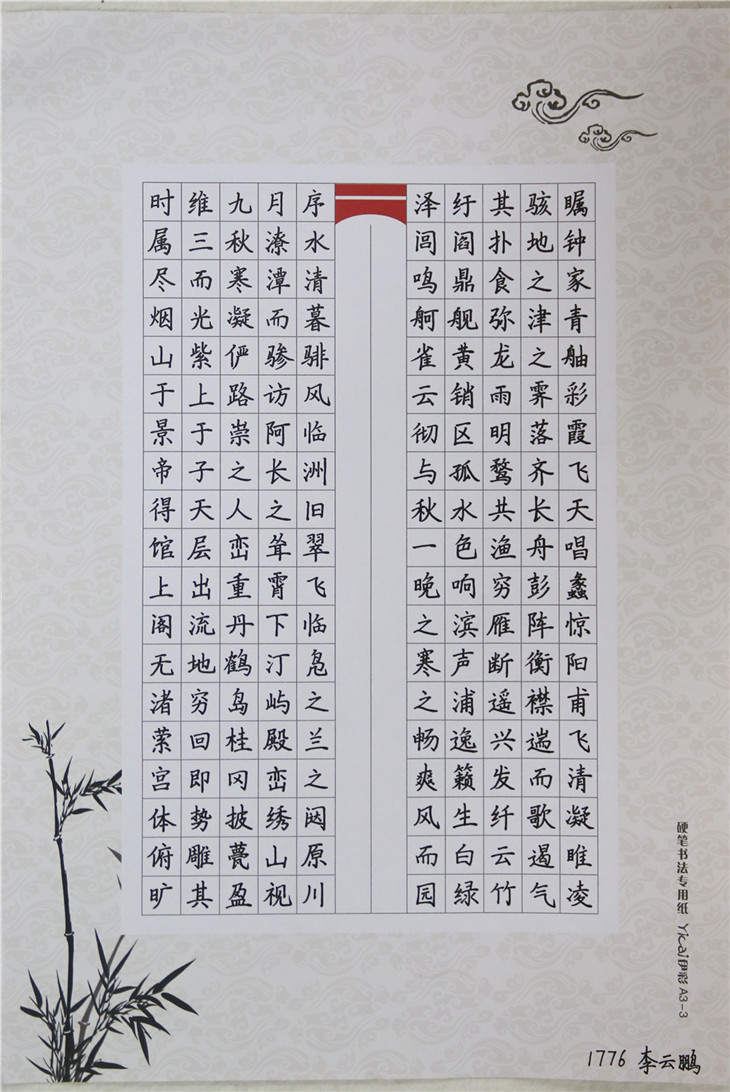 时维九月序
属三秋潦水
尽而寒潭清
烟光凝而暮
山紫俨骖騑
于上路访风
景于崇阿临
帝子之长洲
得天人之旧
馆层峦耸翠
上出重霄飞
阁流丹下临
无地鹤汀凫
渚穷岛屿之
萦回桂殿兰
宫即冈峦之
体势披绣闼
俯雕甍山原
旷其盈视川
泽纡其骇瞩
闾阎扑地钟
鸣鼎食之家
舸舰弥津青
雀黄龙之舳
云销雨霁彩
彻区明落霞
与孤鹜齐飞
秋水共长天
一色渔舟唱
晚响穷彭蠡
之滨雁阵惊
寒声断衡阳
之浦遥襟甫
畅逸兴遄飞
爽籁发而清
风生纤歌凝
而白云遏睢
园绿竹气凌
硬笔书法专用纸 Yicai伊彩 A3-3
1776 李云鹏